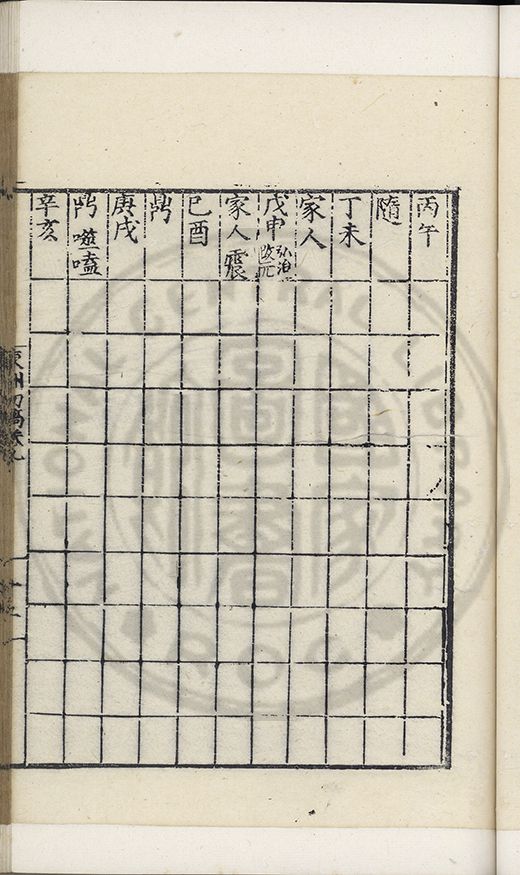 丙午
隨
丁未
家人
戊申 弘治改元
家人 震
己酉
鼎
庚戌
鼎 噬嗑
辛亥